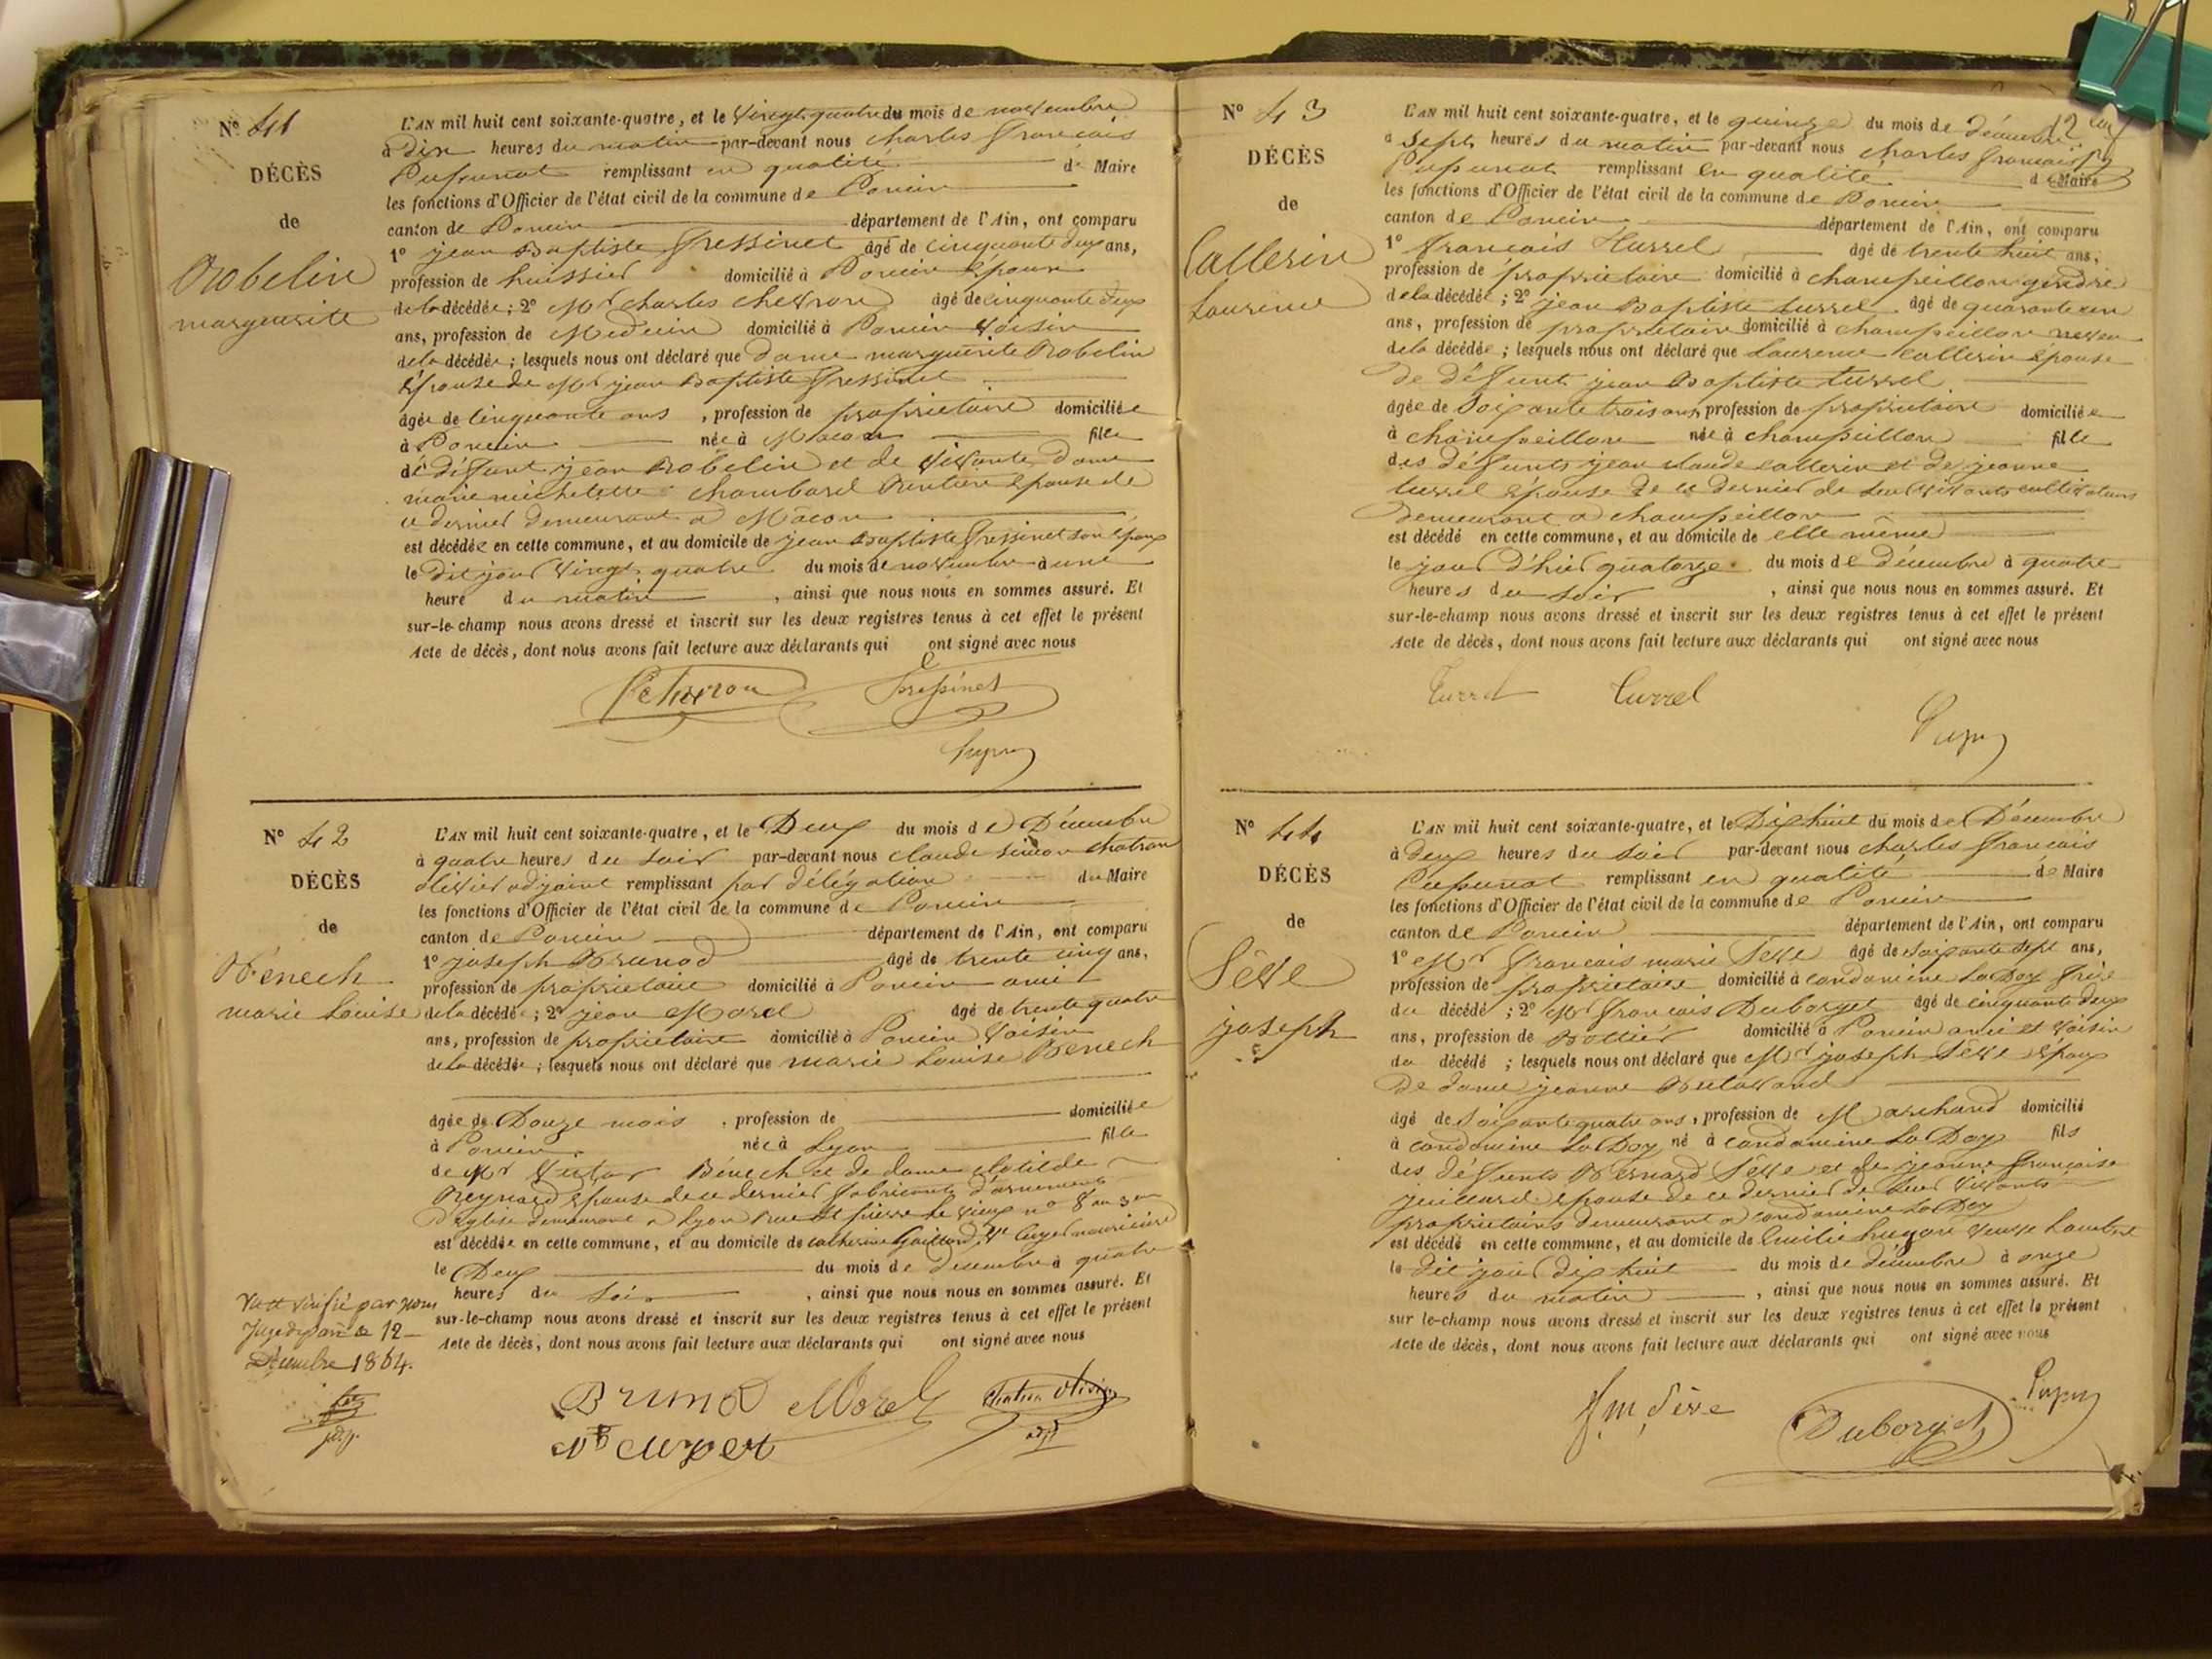 N° 41
DÉCÈS
de
Robelin
marguerite
L'AN mil huit cent soixante-quatre, et le Vingt quatre du mois de novembre
à Dix heures du matin par-devant nous charles francois
remplissant en qualité de Maire
les fonctions d'Officier de l'état civil de la commune de Poncin
canton de Poncin département de l'Ain, ont comparu
1° jean Baptiste Gressinet âgé de cinquante deux ans,
profession de huissier domicilié à Poncin Époux
de la décédée ; 2° Mr charles chevron âgé de cinquante deux
ans, profession de Médecin domicilié à Poncin Voisin
de la décédée ; lesquels nous ont déclaré que dame marguerite Robelin
Épouse de Mr jean Baptiste Gressinet
âgée de cinquante ans , profession de propriétaire domiciliée
à Poncin née à Macon fille
de défunt jean Robelin et de Vivante dame
marie michelette chambard Rentière épouse de
ce dernier demeurant a Mâcon
est décédée en cette commune, et au domicile de jean Baptiste Gressinet son époux
le dit jour Vingt quatre du mois de novembre à une
heure du matin , ainsi que nous nous en sommes assuré. Et
sur-le-champ nous avons dressé et inscrit sur les deux registres tenus à cet effet le présent
Acte de décès, dont nous avons fait lecture aux déclarants qui ont signé avec nous
N° 42
DÉCÈS
de
Bénech
marie Louise
L'AN mil huit cent soixante-quatre, et le Deux du mois de Décembre
à quatre heures du soir par-devant nous claude simon chatron
olivier adjoint remplissant par délégation du Maire
les fonctions d'Officier de l'état civil de la commune de Poncin
canton de Poncin département de l'Ain, ont comparu
1° joseph Brunod âgé de trente cinq ans,
profession de propriétaire domicilié à Poncin ami
de la décédée ; 2° jean Morel âgé de trente quatre
ans, profession de propriétaire domicilié à Poncin Voisin
de la décédée ; lesquels nous ont déclaré que marie Louise Benech
âgée de Douze mois , profession de domiciliée
à Poncin née à Lyon fille
de Mr Victor Bénech et de dame clotilde
Reynard épouse de ce dernier fabricants d'ornements
d'Eglise demeurant a Lyon Rue St pierre le vieux n° 8 au 3em
est décédée en cette commune, et au domicile de catherine Gaillard Ve Cuzet nourricière
le Deux du mois de décembre à quatre
heures du soir , ainsi que nous nous en sommes assuré. Et
sur-le-champ nous avons dressé et inscrit sur les deux registres tenus à cet effet le présent
Acte de décès, dont nous avons fait lecture aux déclarants qui ont signé avec nous
Vu et vérifié par nous
Juge de paix le 12
Décembre 1864.
Brunod Morel
N° 43
DÉCÈS
de
Callerin
Laurence
L'AN mil huit cent soixante-quatre, et le quinze du mois de Décembre
à Sept heures du matin par-devant nous charles francois
remplissant en qualité de Maire
les fonctions d'Officier de l'état civil de la commune de Poncin
canton de Poncin département de l'Ain, ont comparu
1° francois Turrel âgé de trente huit ans,
profession de propriétaire domicilié à champeillon gendre
de la décédée ; 2° jean Baptiste turrel âgé de quarante un
ans, profession de propriétaire domicilié à champeillon neveu
de la décédée ; lesquels nous ont déclaré que Laurence Callerin épouse
de défunt jean Baptiste turrel
âgée de Soixante trois ans, profession de propriétaire domiciliée
à champeillon née à champeillon fille
des défunts jean claude callerin et de jeanne
turrel épouse de ce dernier de leur vivants cultivateurs
demeurant a champeillon
est décédé en cette commune, et au domicile de elle même
le jour d'hier quatorze du mois de Décembre à quatre
heures du soir , ainsi que nous nous en sommes assuré. Et
sur-le-champ nous avons dressé et inscrit sur les deux registres tenus à cet effet le présent
Acte de décès, dont nous avons fait lecture aux déclarants qui ont signé avec nous
Turrel Turrel
N° 44
DÉCÈS
de
Sève
joseph
L'AN mil huit cent soixante-quatre, et le Dix huit du mois de Décembre
à deux heures du soir par-devant nous charles francois
remplissant en qualité de Maire
les fonctions d'Officier de l'état civil de la commune de Poncin
canton de Poncin département de l'Ain, ont comparu
1° Mr francois marie Sève âgé de soixante sept ans,
profession de propriétaire domicilié à condamine La Doy frère
du décédé ; 2° Mr francois Duborget âgé de cinquante deux
ans, profession de Bottier domicilié à Poncin ami et Voisin
du décédé ; lesquels nous ont déclaré que Mr joseph Sève époux
de dame jeanne
âgé de soixante quatre ans, profession de Marchand domicilié
à condamine La Doy né à condamine La Doy fils
des défunts Bernard Sève et de jeanne francoise
juillard épouse de ce dernier de leur vivants
propriétaires demeurant a condamine La Doy
est décédé en cette commune, et au domicile de Emilie hugon veuve Lambert
le dit jour dix huit du mois de décembre à onze
heures du matin , ainsi que nous nous en sommes assuré. Et
sur-le-champ nous avons dressé et inscrit sur les deux registres tenus à cet effet le présent
Acte de décès, dont nous avons fait lecture aux déclarants qui ont signé avec nous
fm Sève Duborget